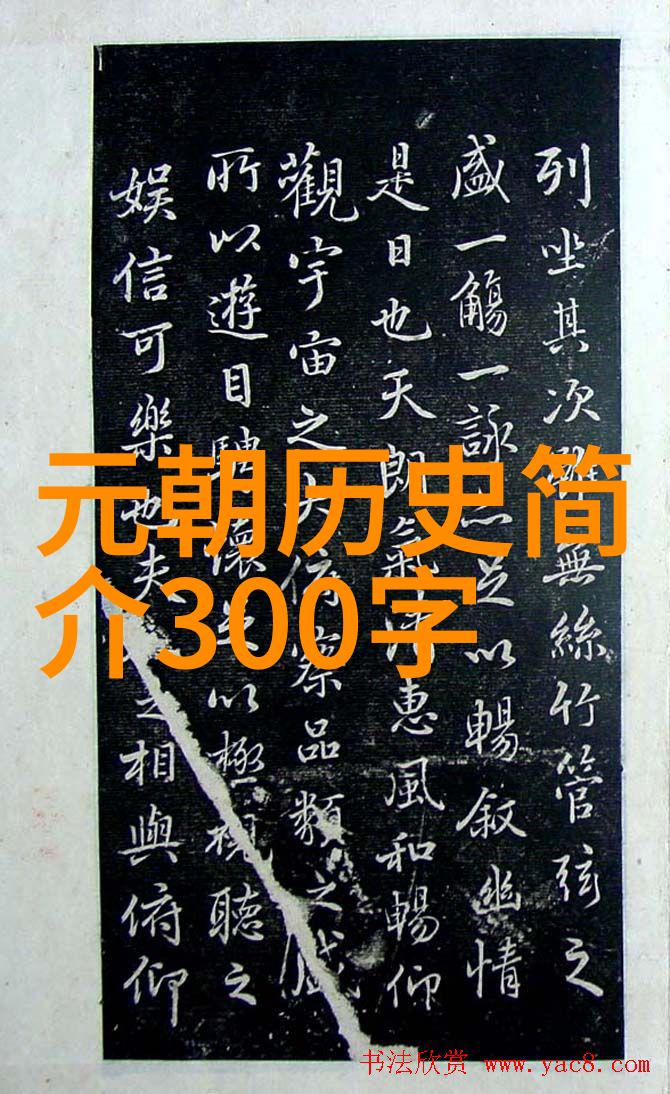 列坐其次雖無絲竹管弦之
盛一觴一詠亦足以暢敘幽情
是日也天朗氣清惠風和暢仰
觀宇宙之大俯察品類之盛
所以遊目騁懷足以極視聽之
娛信可樂也夫之相與俯仰
元朝历史简
介300字
书法欣赏 www.yac8.com